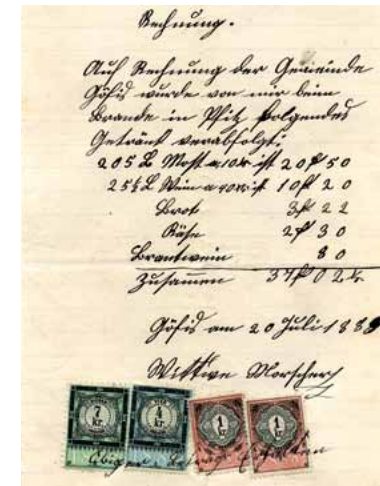 Rechnung.
Auf Rechnung der Gemeinde
Göfis wurde von mir beim
Brande in Pfitz folgendes
Getränk verabfolgt:
205 L Most a 10 kr ist 20 fl 50
25½ L Wein a 40 kr ist 10 fl 20
Brot 3 fl 22
Käse 2 fl 30
Brantwein 80
Zusammen 37 fl 02 kr
Göfis am 20 Juli 1889
Wittwe Morscher
7 kr. 4 kr. 1 kr. 1 kr.
Obigen Betrag Erhalten